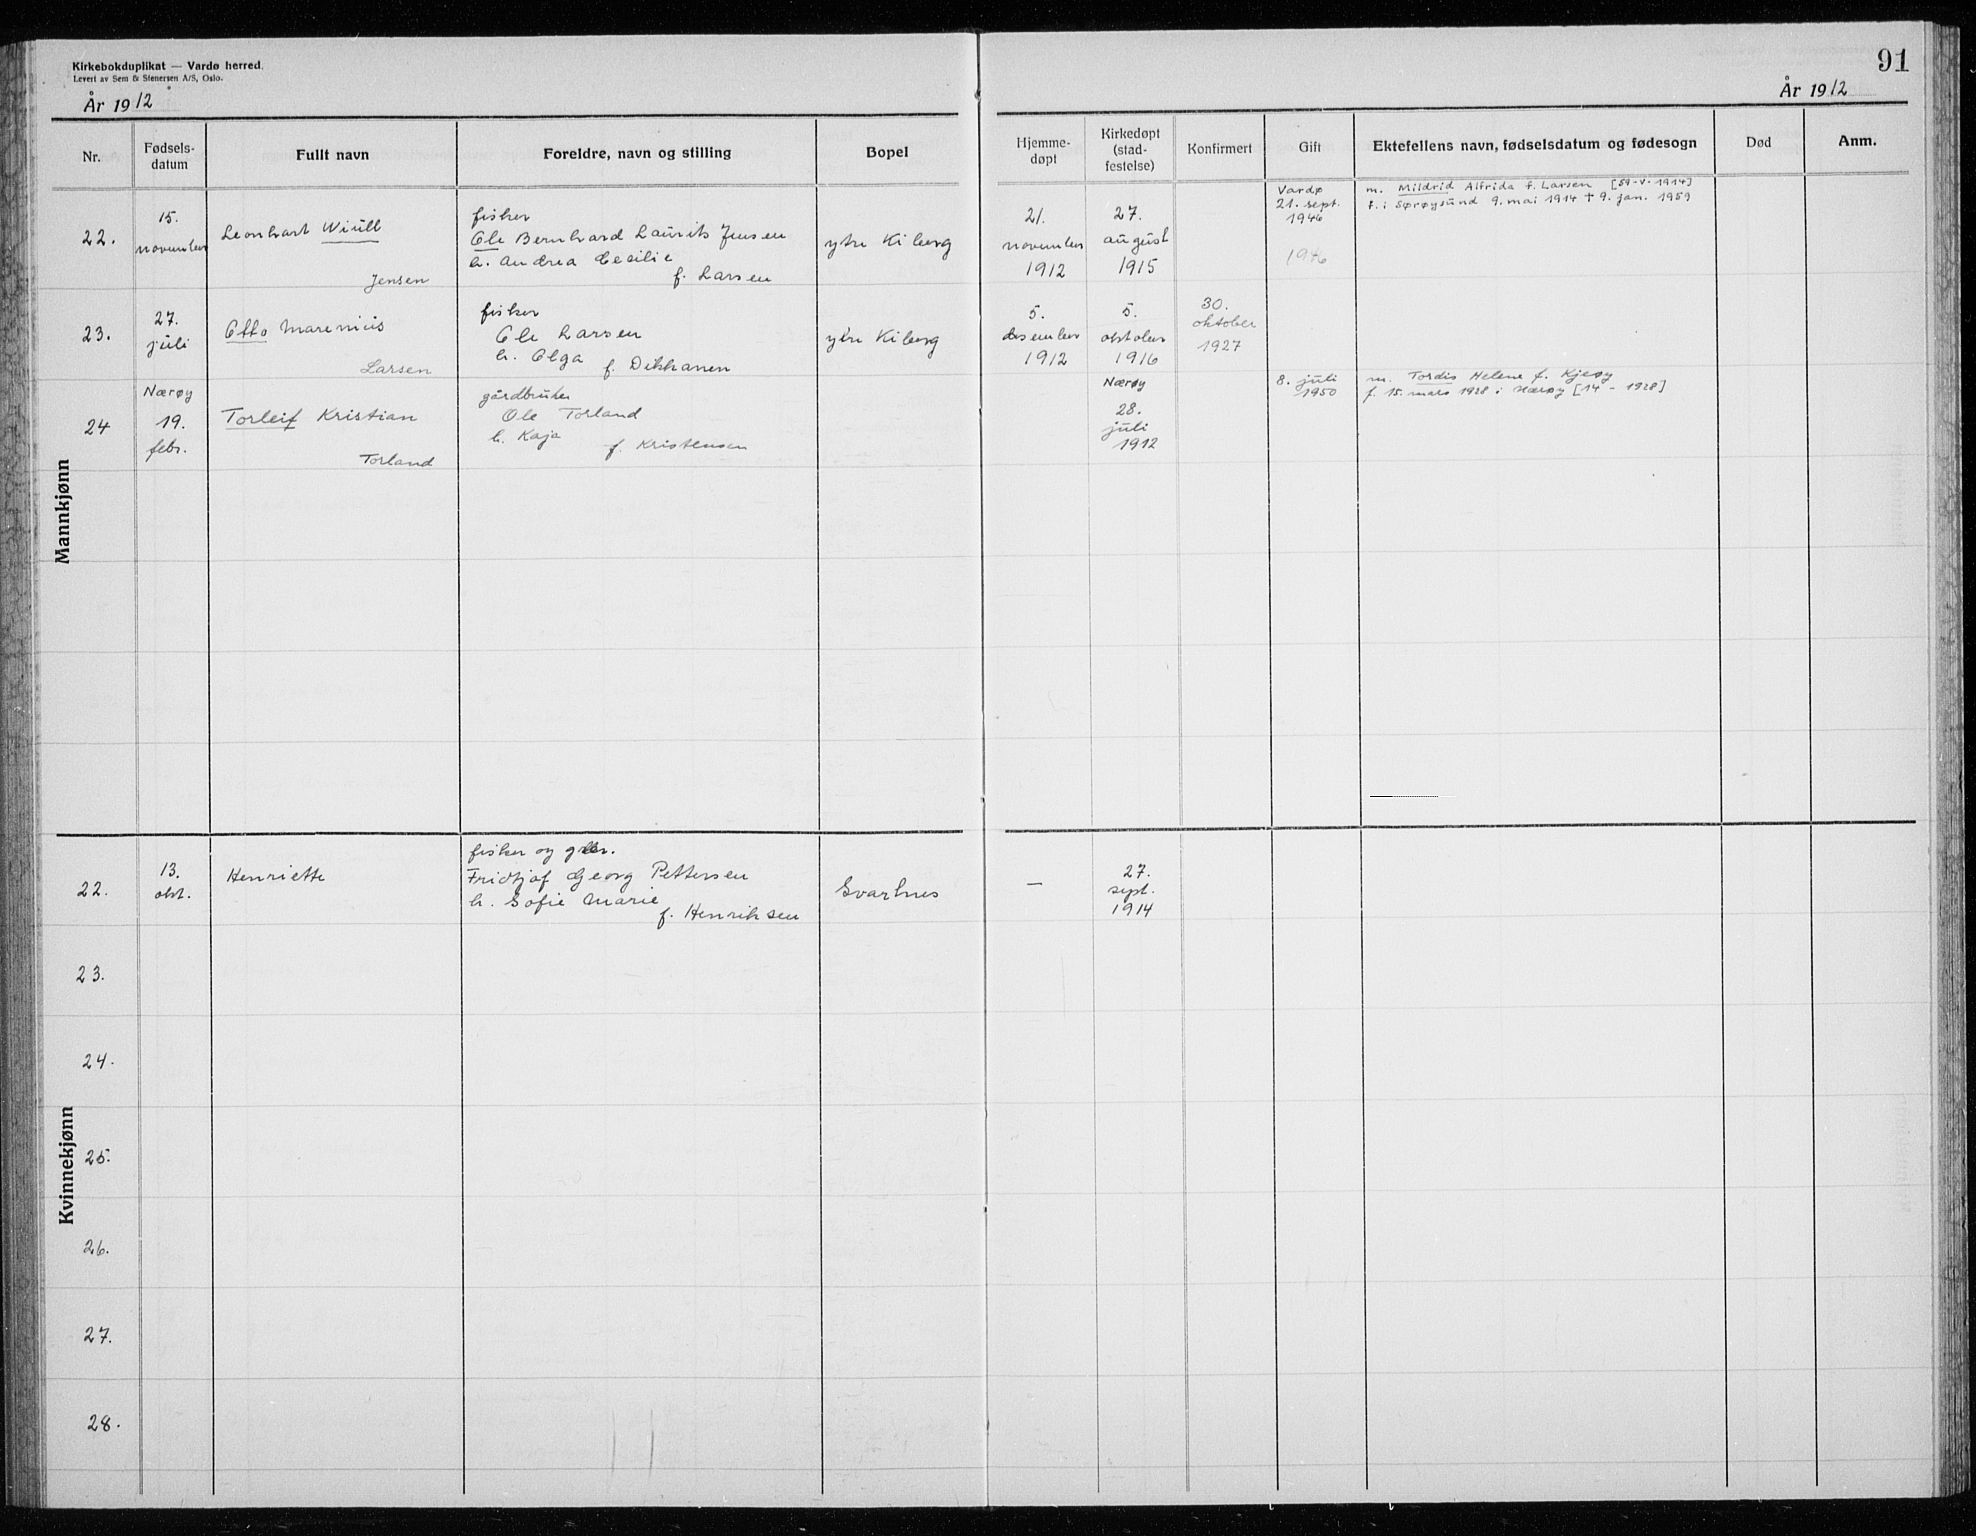 Kirkebokduplikat — Vardø herred.
Levert av Sem & Stenersen A/S, Oslo.
År 1912
91
År 1912
Nr.
Fødsels-
datum
Fullt navn
Foreldre, navn og stilling
Bopel
Hjemme-
døpt
Kirkedøpt
(stad-
festelse)
Konfirmert
Gift
Ektefellens navn, fødselsdatum og fødesogn
Død
Anm.
Mannkjønn
22.
15.
november
Leonhart Wiull
Jensen
fisker
Ole Bernhard Laurits Jensen
h. Andrea Cecilie
f. Larsen
ytre Kiberg
21.
november
1912
27.
august
1915
Vardø
21. sept.
1946
1946
m. Mildrid Alfrida f. Larsen [59-V-1914]
f. i Sørøysund 9. mai 1914 † 9. jan. 1959
23.
27.
juli
Otto Marenius
Larsen
fisker
Ole Larsen
h. Olga f. Dikkanen
ytre Kiberg
5.
desember
1912
5.
oktober
1916
30.
oktober
1927
24
Nærøy
19.
febr.
Torleif Kristian
Torland
gårdbruker
Ole Torland
h. Kaja
f. Kristensen
Nærøy
28.
juli
1912
8. juli
1950
m. Tordis Helene f. Kjeøy
f. 15. mars 1928 i Nærøy [14 - 1928]
Kvinnekjønn
22.
13.
okt.
Henriette
fisker og gbr.
Fridtjof Georg Pettersen
h. Sofie Marie
f. Henriksen
Svartnes
—
27.
sept.
1914
23.
24.
25.
26.
27.
28.